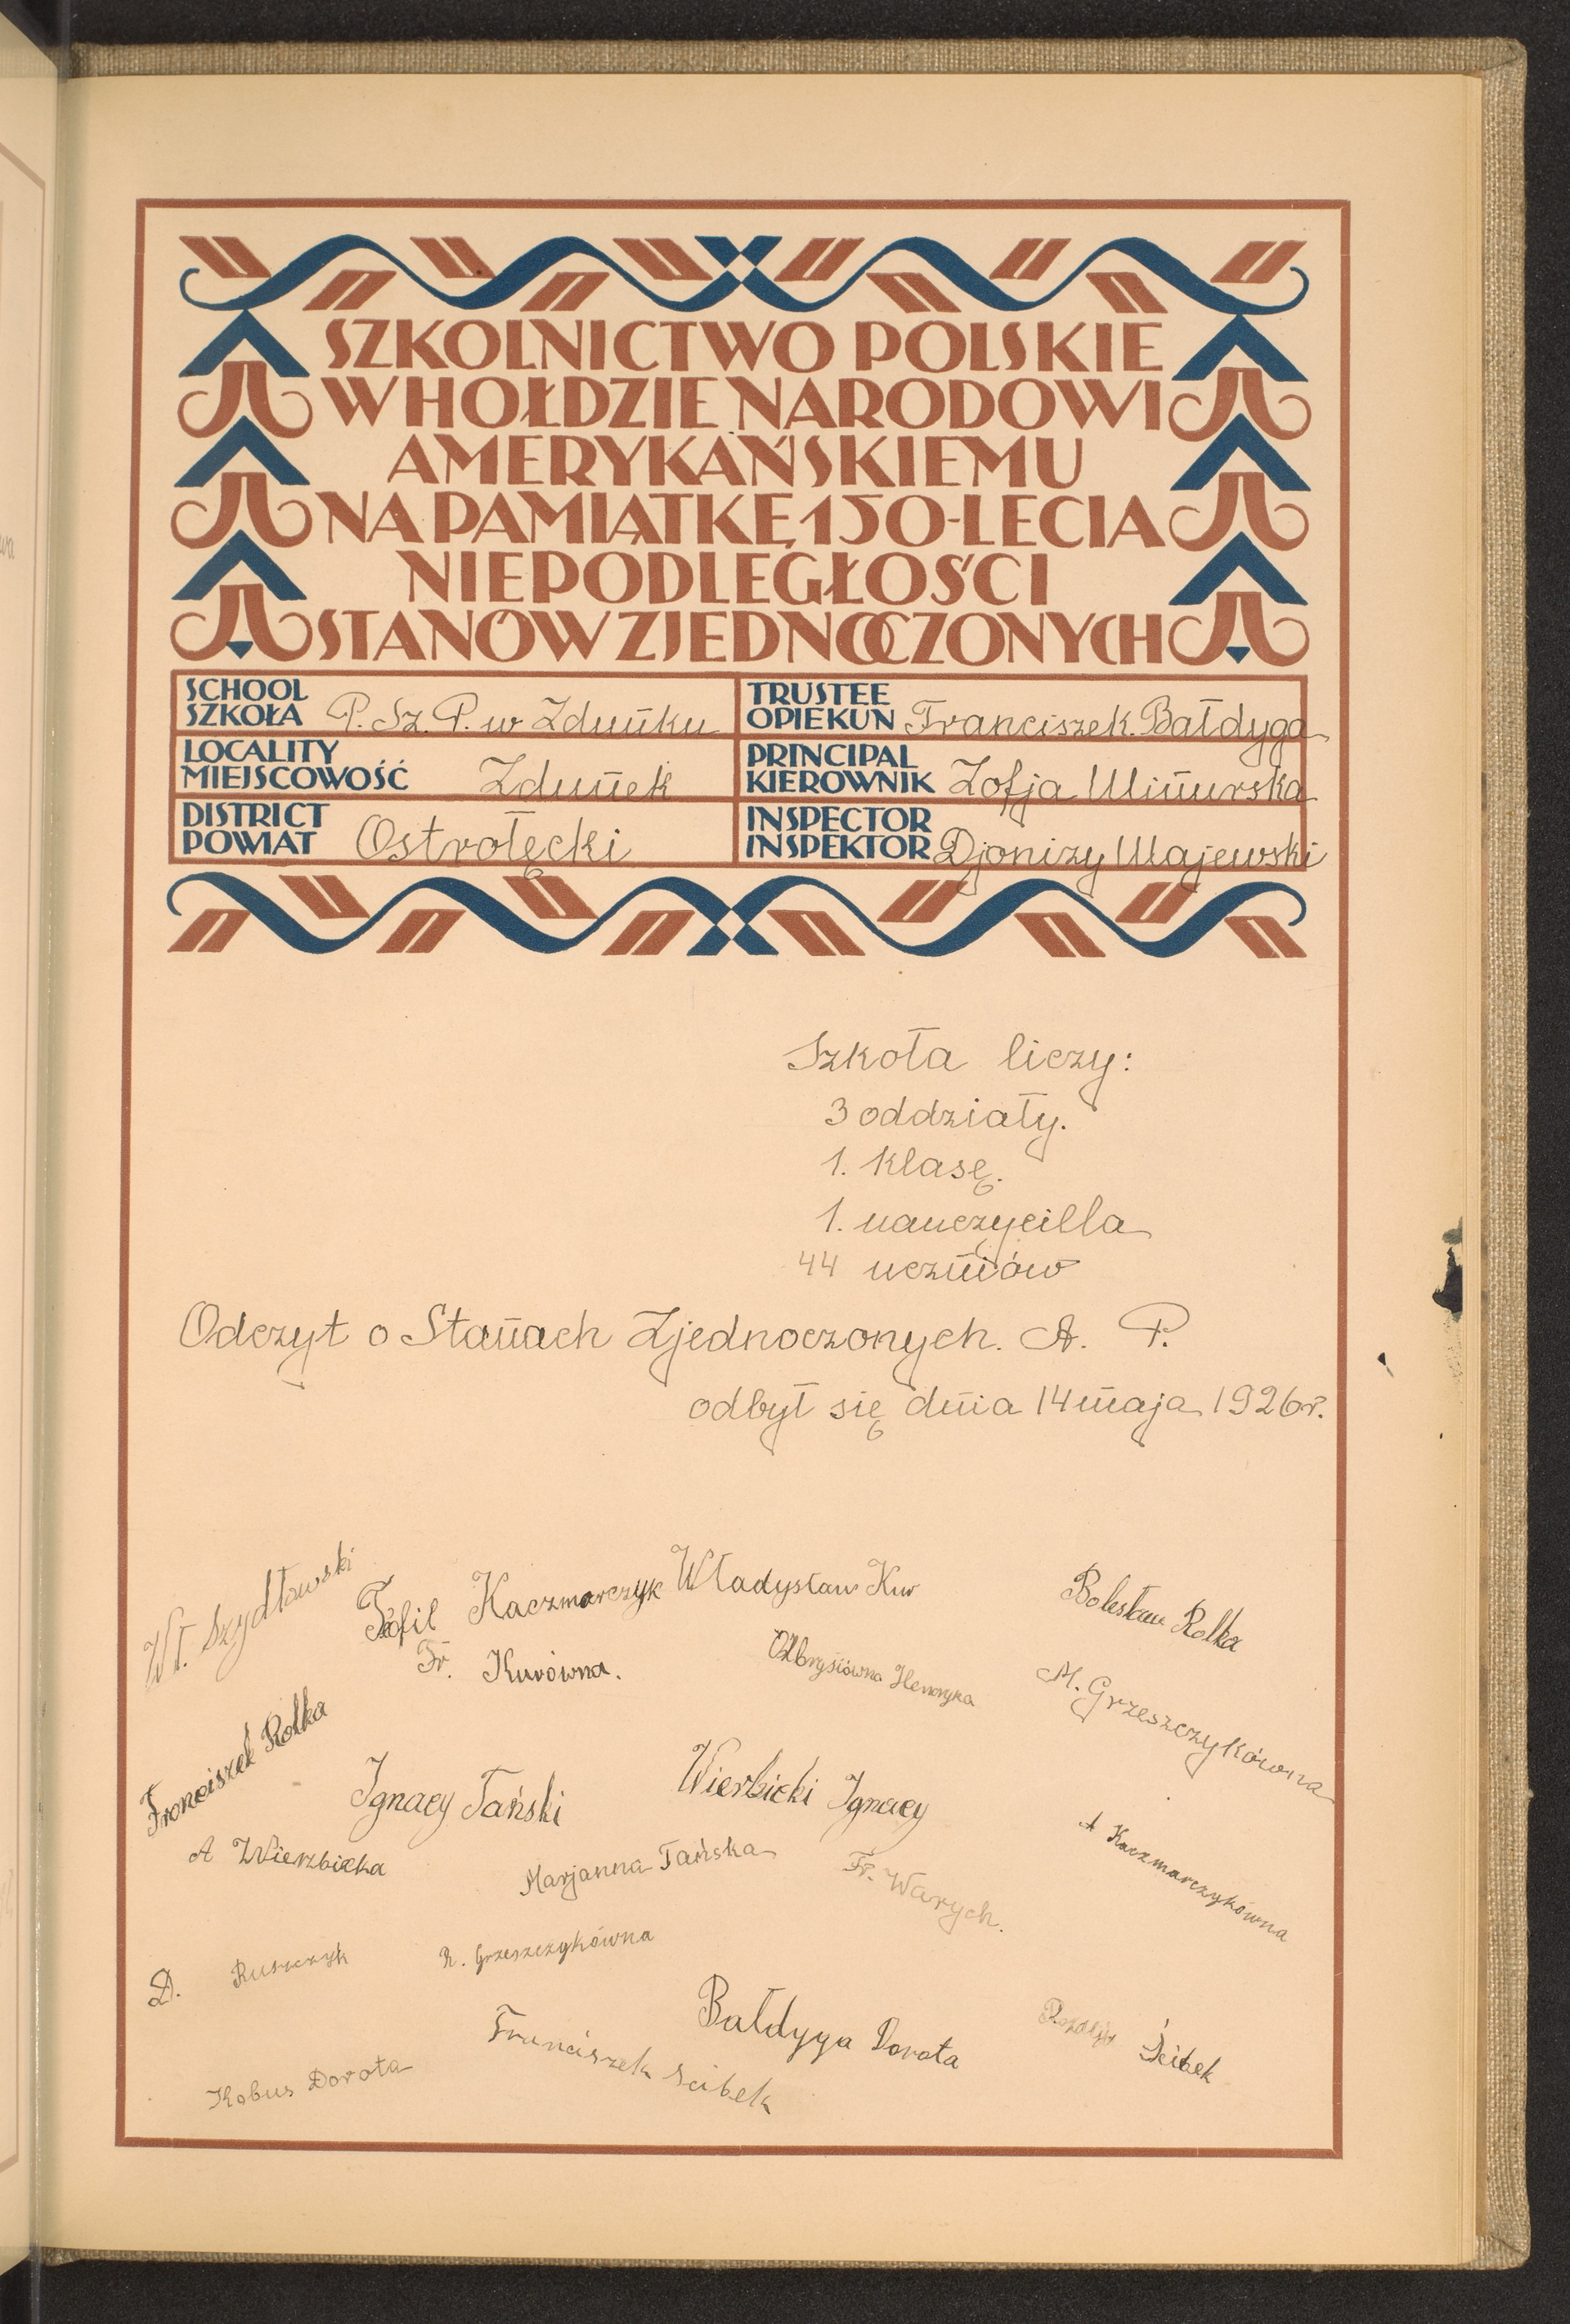 SZKOLNICTWO POLSKIE
W HOŁDZIE NARODOWI
AMERYKAŃSKIEMU
NA PAMIĄTKĘ 150-LECIA
NIEPODLEGŁOŚCI
STANÓW ZJEDNOCZONYCH
SCHOOL
SZKOŁA P. Sz. P. w Zduńku
TRUSTEE
OPIEKUN Franciszek Bałdyga
LOCALITY
MIEJSCOWOŚĆ Zdunek
PRINCIPAL
KIEROWNIK Zofja
DISTRICT
POWIAT Ostrołęcki
INSPECTOR
INSPEKTOR Djonizy Majewski
Szkoła liczy:
3 oddziały.
1. klasę.
1. nauczyciela
44 uczniów
Odczyt o Stanach Zjednoczonych. A. P.
odbył się dnia 14 maja 1926 r.
Wł. Szydłowski
Teofil Kaczmarczyk
Władysław Kur
Bolesław Rolka
Fr. Kurówna.
Henryka
M. Grzeszczykówna
Franciszek Rolka
Ignacy Tański
Wierbicki Ignacy
A Wierzbicka
Marjanna Tańska
Fr. Warych.
A Kaczmarczykówna
D. Ruszczyk
R. Grzeszczykówna
Bałdyga Dorota
Ścibek
Franciszek Scibek
Kobus Dorota